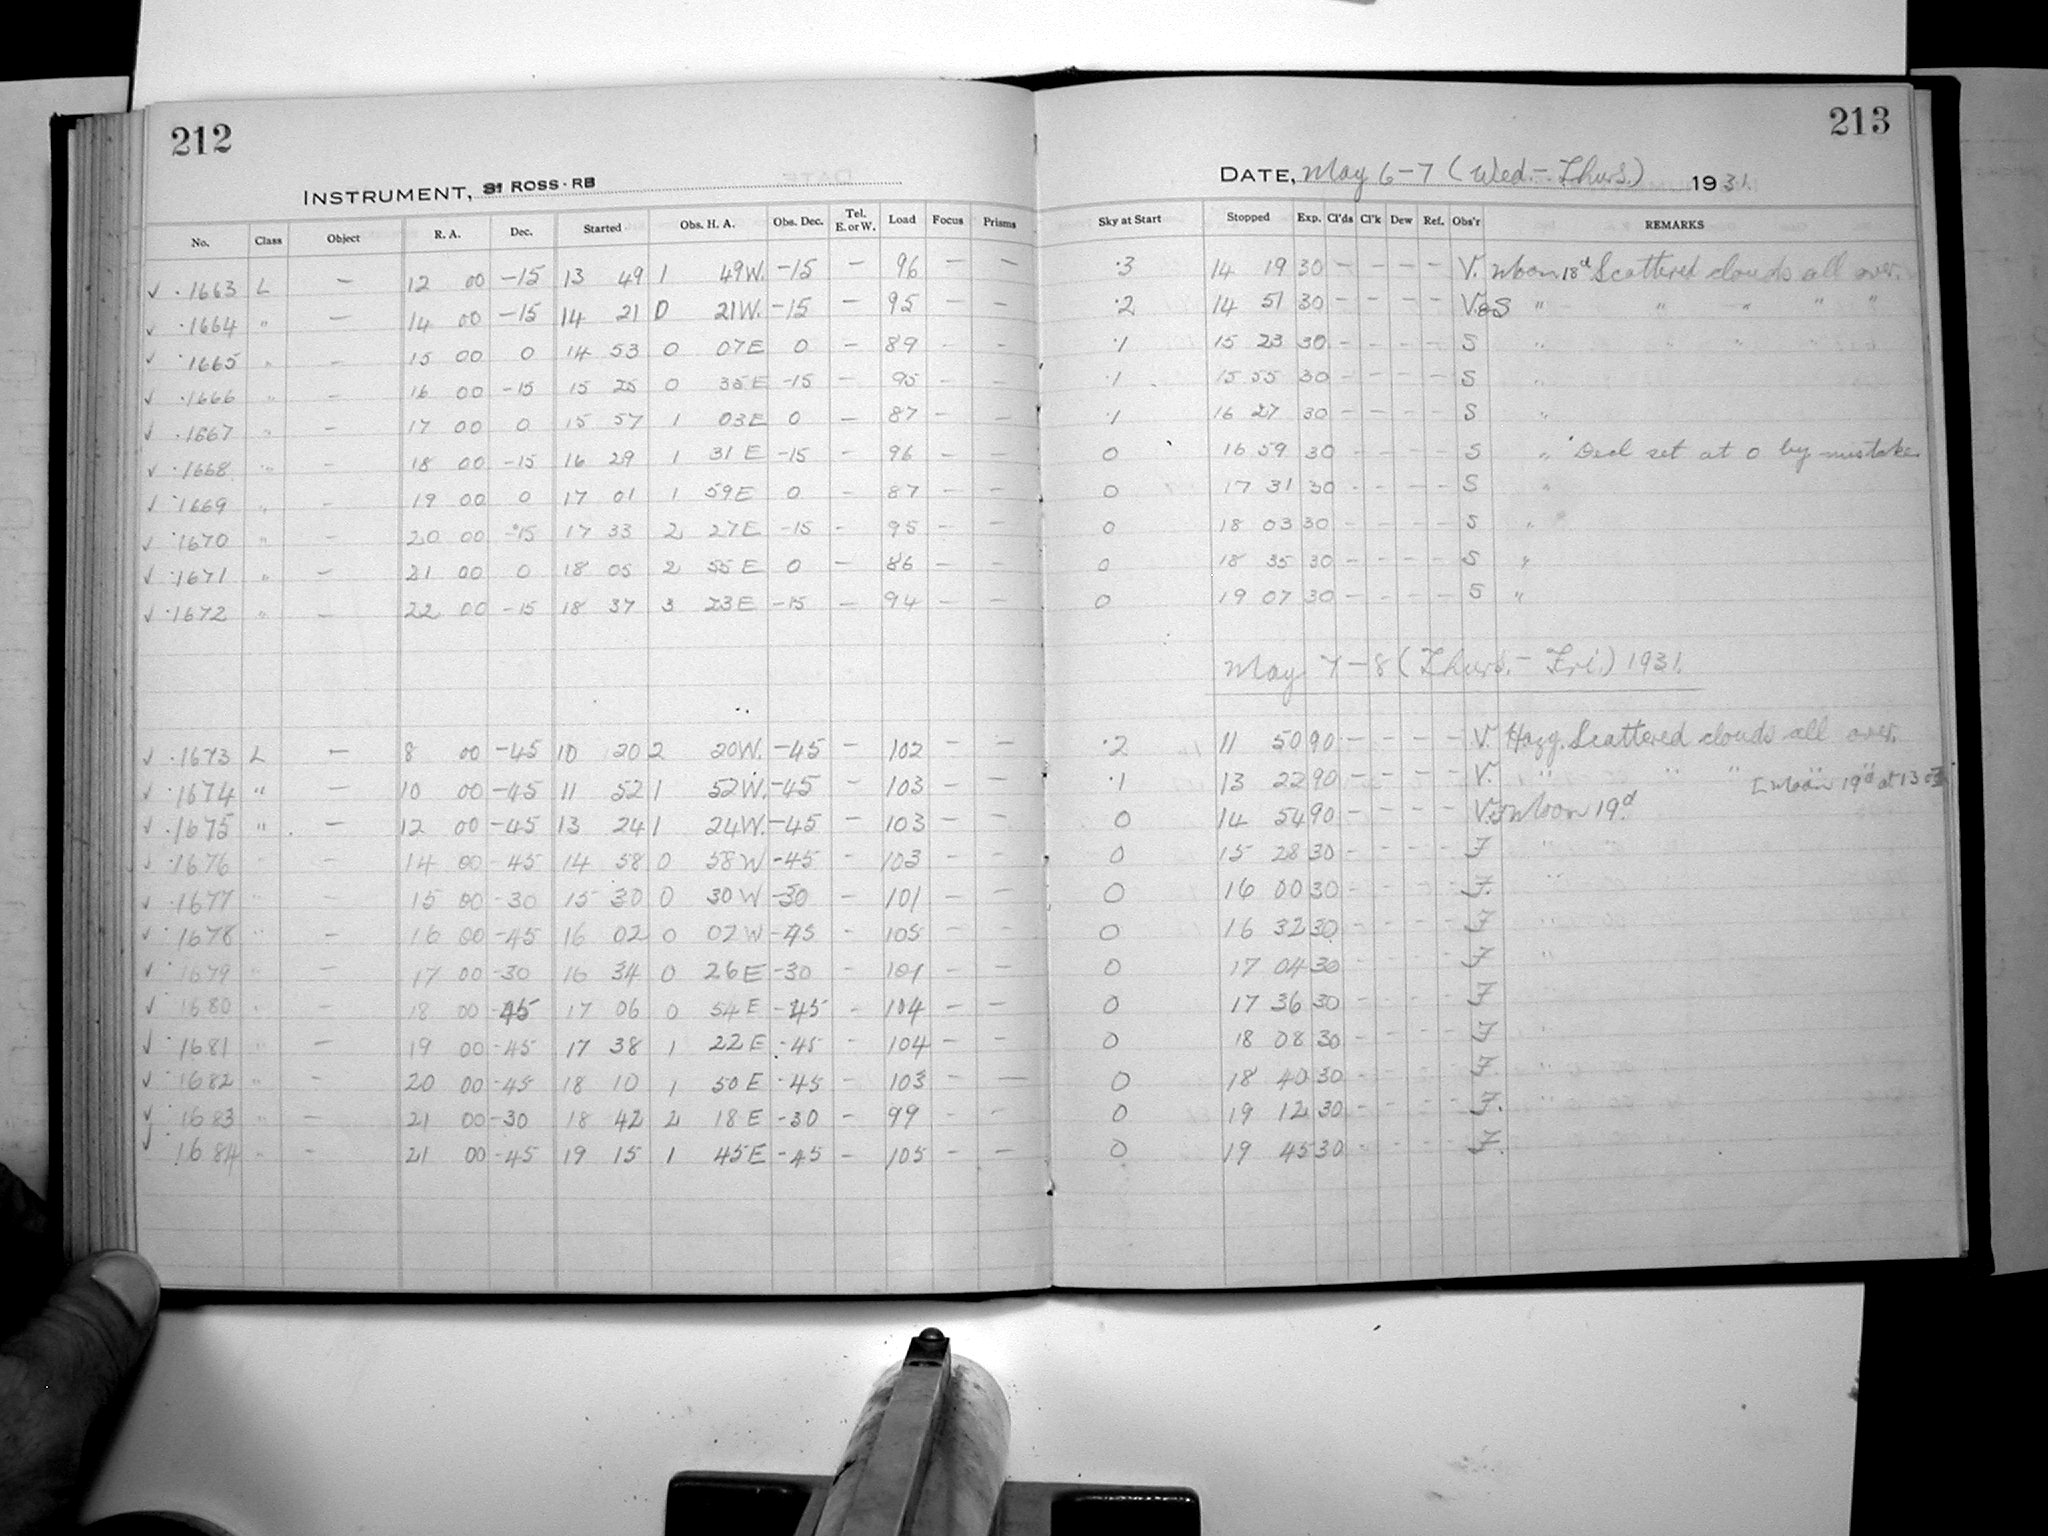 212
213
INSTRUMENT, ROSS-RB
DATE, May 6-7 (Wed.-Thurs.) 1931.
No. Class Object R. A. Dec. Started Obs. H. A. Obs. Dec. Tel. E. or W. Load Focus Prisms Sky at Start Stopped Exp. Cl'ds Cl'k Dew Ref. Obs'r REMARKS
✓ ·1663 L — 12 00 -15 13 49 1 49W. -15 — 96 — — ·3 14 19 30 - - - - V. Moon 18d Scattered clouds all over.
✓ ·1664 " — 14 00 -15 14 21 0 21W. -15 — 95 — — ·2 14 51 30 - - - - V&S " " " " "
✓ ·1665 " — 15 00 0 14 53 0 07E 0 — 89 — — ·1 15 23 30 - - - - S " " " " "
✓ ·1666 " — 16 00 -15 15 25 0 35E -15 — 95 — — ·1 15 55 30 - - - - S "
✓ ·1667 " — 17 00 0 15 57 1 03E 0 — 87 — — ·1 16 27 30 - - - - S "
✓ ·1668 " — 18 00 -15 16 29 1 31E -15 — 96 — — 0 16 59 30 - - - - S " Decl set at 0 by mistake
✓ ·1669 " — 19 00 0 17 01 1 59E 0 — 87 — — 0 17 31 30 - - - - S "
✓ ·1670 " — 20 00 -15 17 33 2 27E -15 - 95 — — 0 18 03 30 - - - - S "
✓ ·1671 " — 21 00 0 18 05 2 55E 0 — 86 — — 0 18 35 30 - - - - S "
✓ ·1672 " — 22 00 -15 18 37 3 23E -15 — 94 — — 0 19 07 30 - - - - S "
May 7-8 (Thurs.-Fri.) 1931.
✓ ·1673 L — 8 00 -45 10 20 2 20W. -45 — 102 — — ·2 11 50 90 - - - - V. Hazy. Scattered clouds all over.
✓ ·1674 " — 10 00 -45 11 52 1 52W. -45 — 103 — — ·1 13 22 90 - - - - V. " " " " " [Moon 19d at 13
✓ ·1675 " — 12 00 -45 13 24 1 24W. -45 — 103 — — 0 14 54 90 - - - - Moon 19d
✓ ·1676 " — 14 00 -45 14 58 0 58W -45 — 103 — — 0 15 28 30 - - - - F " "
✓ ·1677 " — 15 00 -30 15 30 0 30W -30 — 101 — — 0 16 00 30 - - - - F. "
✓ ·1678 " — 16 00 -45 16 02 0 02W -45 — 105 — — 0 16 32 30 - - - - F "
✓ ·1679 " — 17 00 -30 16 34 0 26E -30 — 101 — — 0 17 04 30 - - - - F "
✓ ·1680 " — 18 00 -45 17 06 0 54E -45 — 104 — — 0 17 36 30 - - - - F "
✓ ·1681 " — 19 00 -45 17 38 1 22E -45 — 104 — — 0 18 08 30 - - - - F "
✓ ·1682 " — 20 00 -45 18 10 1 50E -45 — 103 — — 0 18 40 30 - - - - F. "
✓ ·1683 " — 21 00 -30 18 42 2 18E -30 — 99 — — 0 19 12 30 - - - - F. "
✓ ·1684 " — 21 00 -45 19 15 1 45E -45 — 105 — — 0 19 45 30 - - - - F.